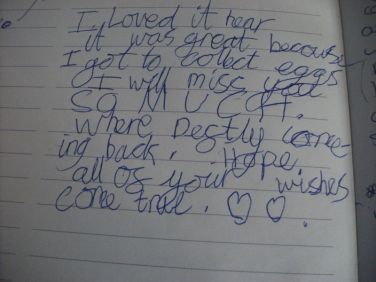 I Loved it hear
it was great because
I got to colect eggs
I will miss you
SO MUCH.
Where Destly come-
ing back. Hope
all of your wishes
come true. ♡ ♡ .